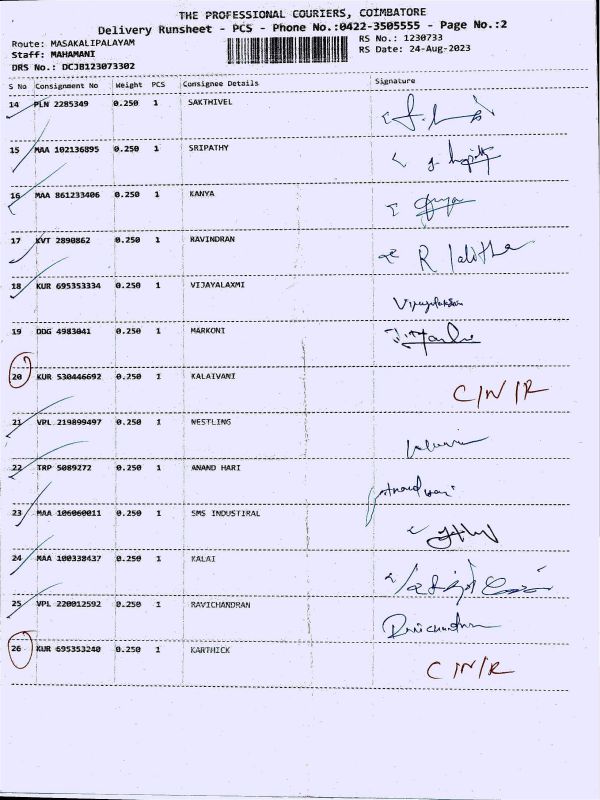 THE PROFESSIONAL COURIERS, COIMBATORE
Delivery Runsheet - PCS - Phone No.:0422-3505555 - Page No.:2
Route: MASAKALIPALAYAM RS No.: 1230733
Staff: MAHAMANI RS Date: 24-Aug-2023
DRS No.: DCJB123073302
S No Consignment No Weight PCS Consignee Details Signature
14 PLN 2285349 0.250 1 SAKTHIVEL
15 MAA 102136895 0.250 1 SRIPATHY
16 MAA 861233406 0.250 1 KANYA
17 KVT 2890862 0.250 1 RAVINDRAN R Lalitha
18 KUR 695353334 0.250 1 VIJAYALAXMI
19 DDG 4983041 0.250 1 MARKONI
20 KUR 530446692 0.250 1 KALAIVANI C/N/R
21 VPL 219899497 0.250 1 NESTLING
22 TRP 5089272 0.250 1 ANAND HARI
23 MAA 106060011 0.250 1 SMS INDUSTIRAL
24 MAA 100338437 0.250 1 KALAI
25 VPL 220012592 0.250 1 RAVICHANDRAN Ravichandran
26 KUR 695353240 0.250 1 KARTHICK C/N/R